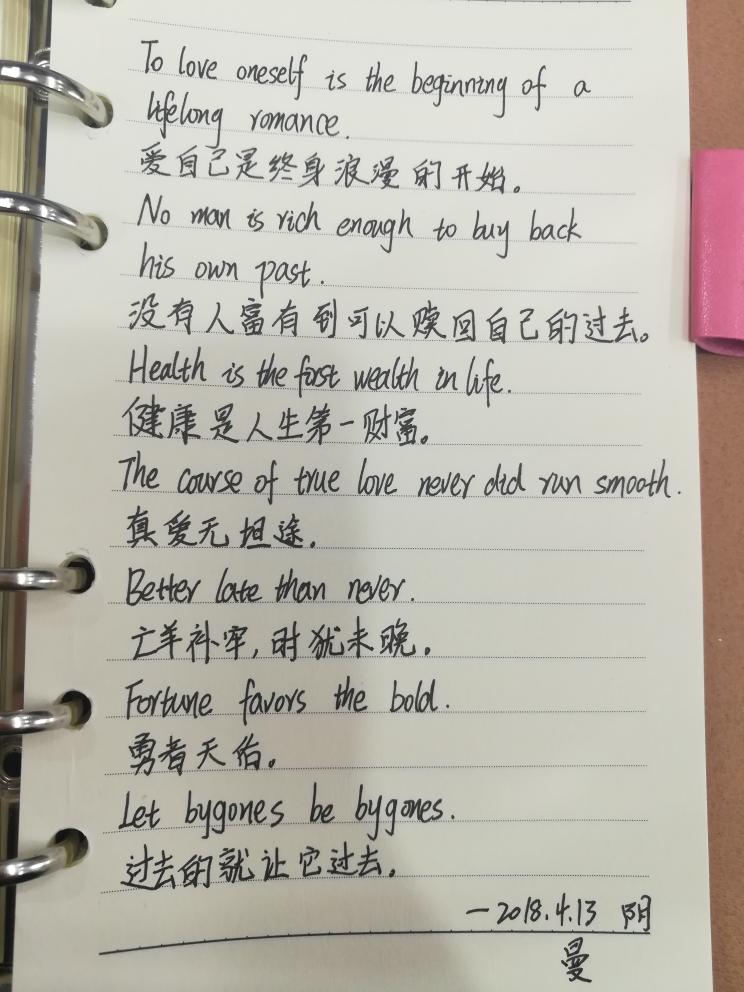 To love oneself is the beginning of a
lifelong romance.
爱自己是终身浪漫的开始。
No man is rich enough to buy back
his own past.
没有人富有到可以赎回自己的过去。
Health is the first wealth in life.
健康是人生第一财富。
The course of true love never did run smooth.
真爱无坦途.
Better late than never.
亡羊补牢,时犹未晚.
Fortune favors the bold.
勇者天佑。
Let bygones be bygones.
过去的就让它过去.
—2018.4.13 阴
曼